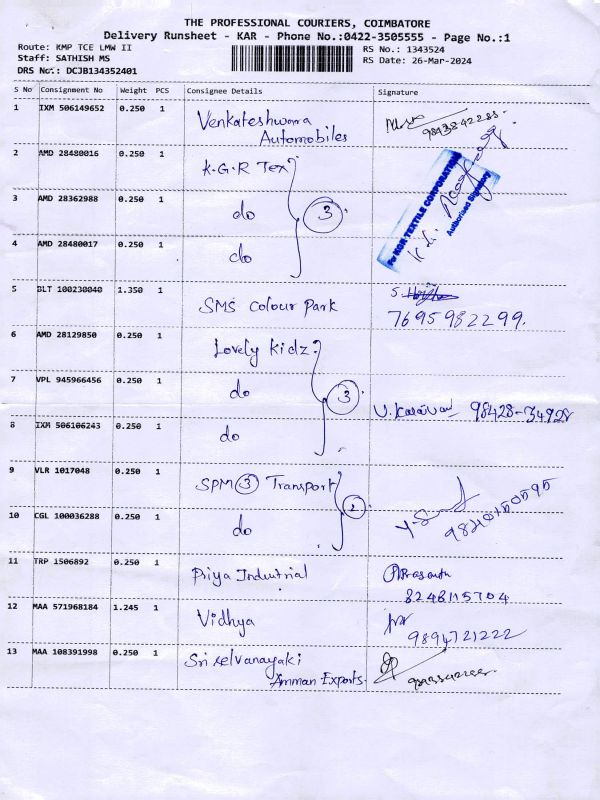 THE PROFESSIONAL COURIERS, COIMBATORE
Delivery Runsheet - KAR - Phone No.:0422-3505555 - Page No.:1
Route: KMP TCE LMW II
RS No.: 1343524
Staff: SATHISH MS
RS Date: 26-Mar-2024
DRS No.: DCJB134352401
S No Consignment No Weight PCS Consignee Details Signature
1 IXM 506149652 0.250 1 Venkateshwara
Automobiles
2 AMD 28480016 0.250 1 K.G.R Tex
3 AMD 28362988 0.250 1 do 3
4 AMD 28480017 0.250 1 do
For KGR TEXTILE CORPORATION
Authorised Signatory
5 BLT 100230040 1.350 1 SMS Colour Park
7695982299.
6 AMD 28129850 0.250 1 Lovely Kidz
7 VPL 945966456 0.250 1 do 3
98428-34928
8 IXM 506106243 0.250 1 do
9 VLR 1017048 0.250 1 SPM 3 Transport
2
10 CGL 100036288 0.250 1 do
11 TRP 1506892 0.250 1 Priya Industrial
8248115704
12 MAA 571968184 1.245 1 Vidhya
9894721222
13 MAA 108391998 0.250 1 Sri selvanayaki
Amman Exports.